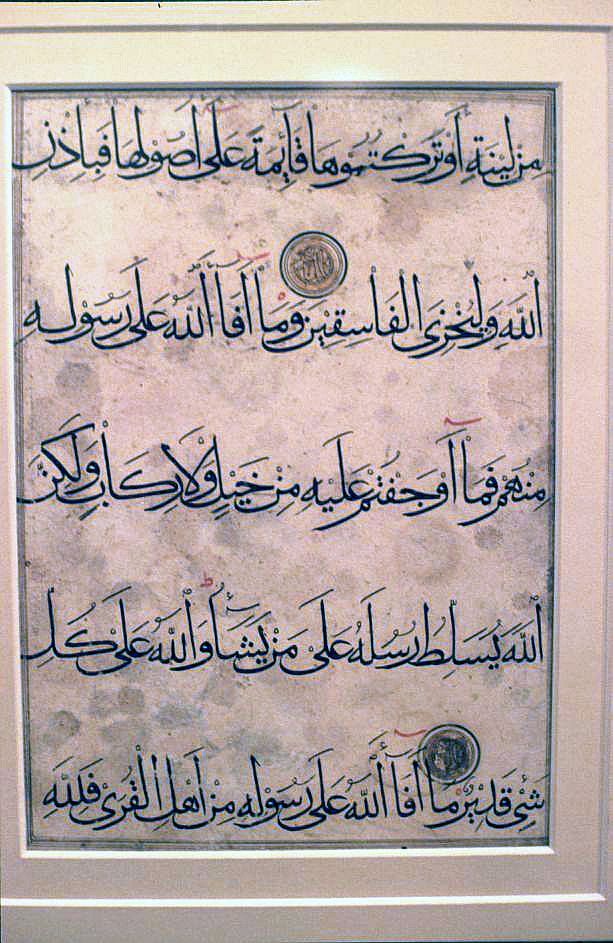 مِنْ لِينَةٍ أَوْ تَرَكْتُمُوهَا قَآئِمَةً عَلَىٰ أُصُولِهَا فَبِإِذْنِ
اللّٰهِ وَلِيُخْزِىَ الْفَاسِقِيْنَ وَمَآ أَفَآءَ اللّٰهُ عَلَىٰ رَسُوْلِهِ
مِنْهُمْ فَمَآ أَوْجَفْتُمْ عَلَيْهِ مِنْ خَيْلٍ وَلَا رِكَابٍ وَلٰكِنَّ
اللّٰهَ يُسَلِّطُ رُسُلَهُ عَلَىٰ مَنْ يَشَآءُ وَاللّٰهُ عَلَىٰ كُلِّ
شَيْءٍ قَدِيْرٌ مَآ أَفَآءَ اللّٰهُ عَلَىٰ رَسُوْلِهِ مِنْ أَهْلِ الْقُرَىٰ فَلِلّٰهِ